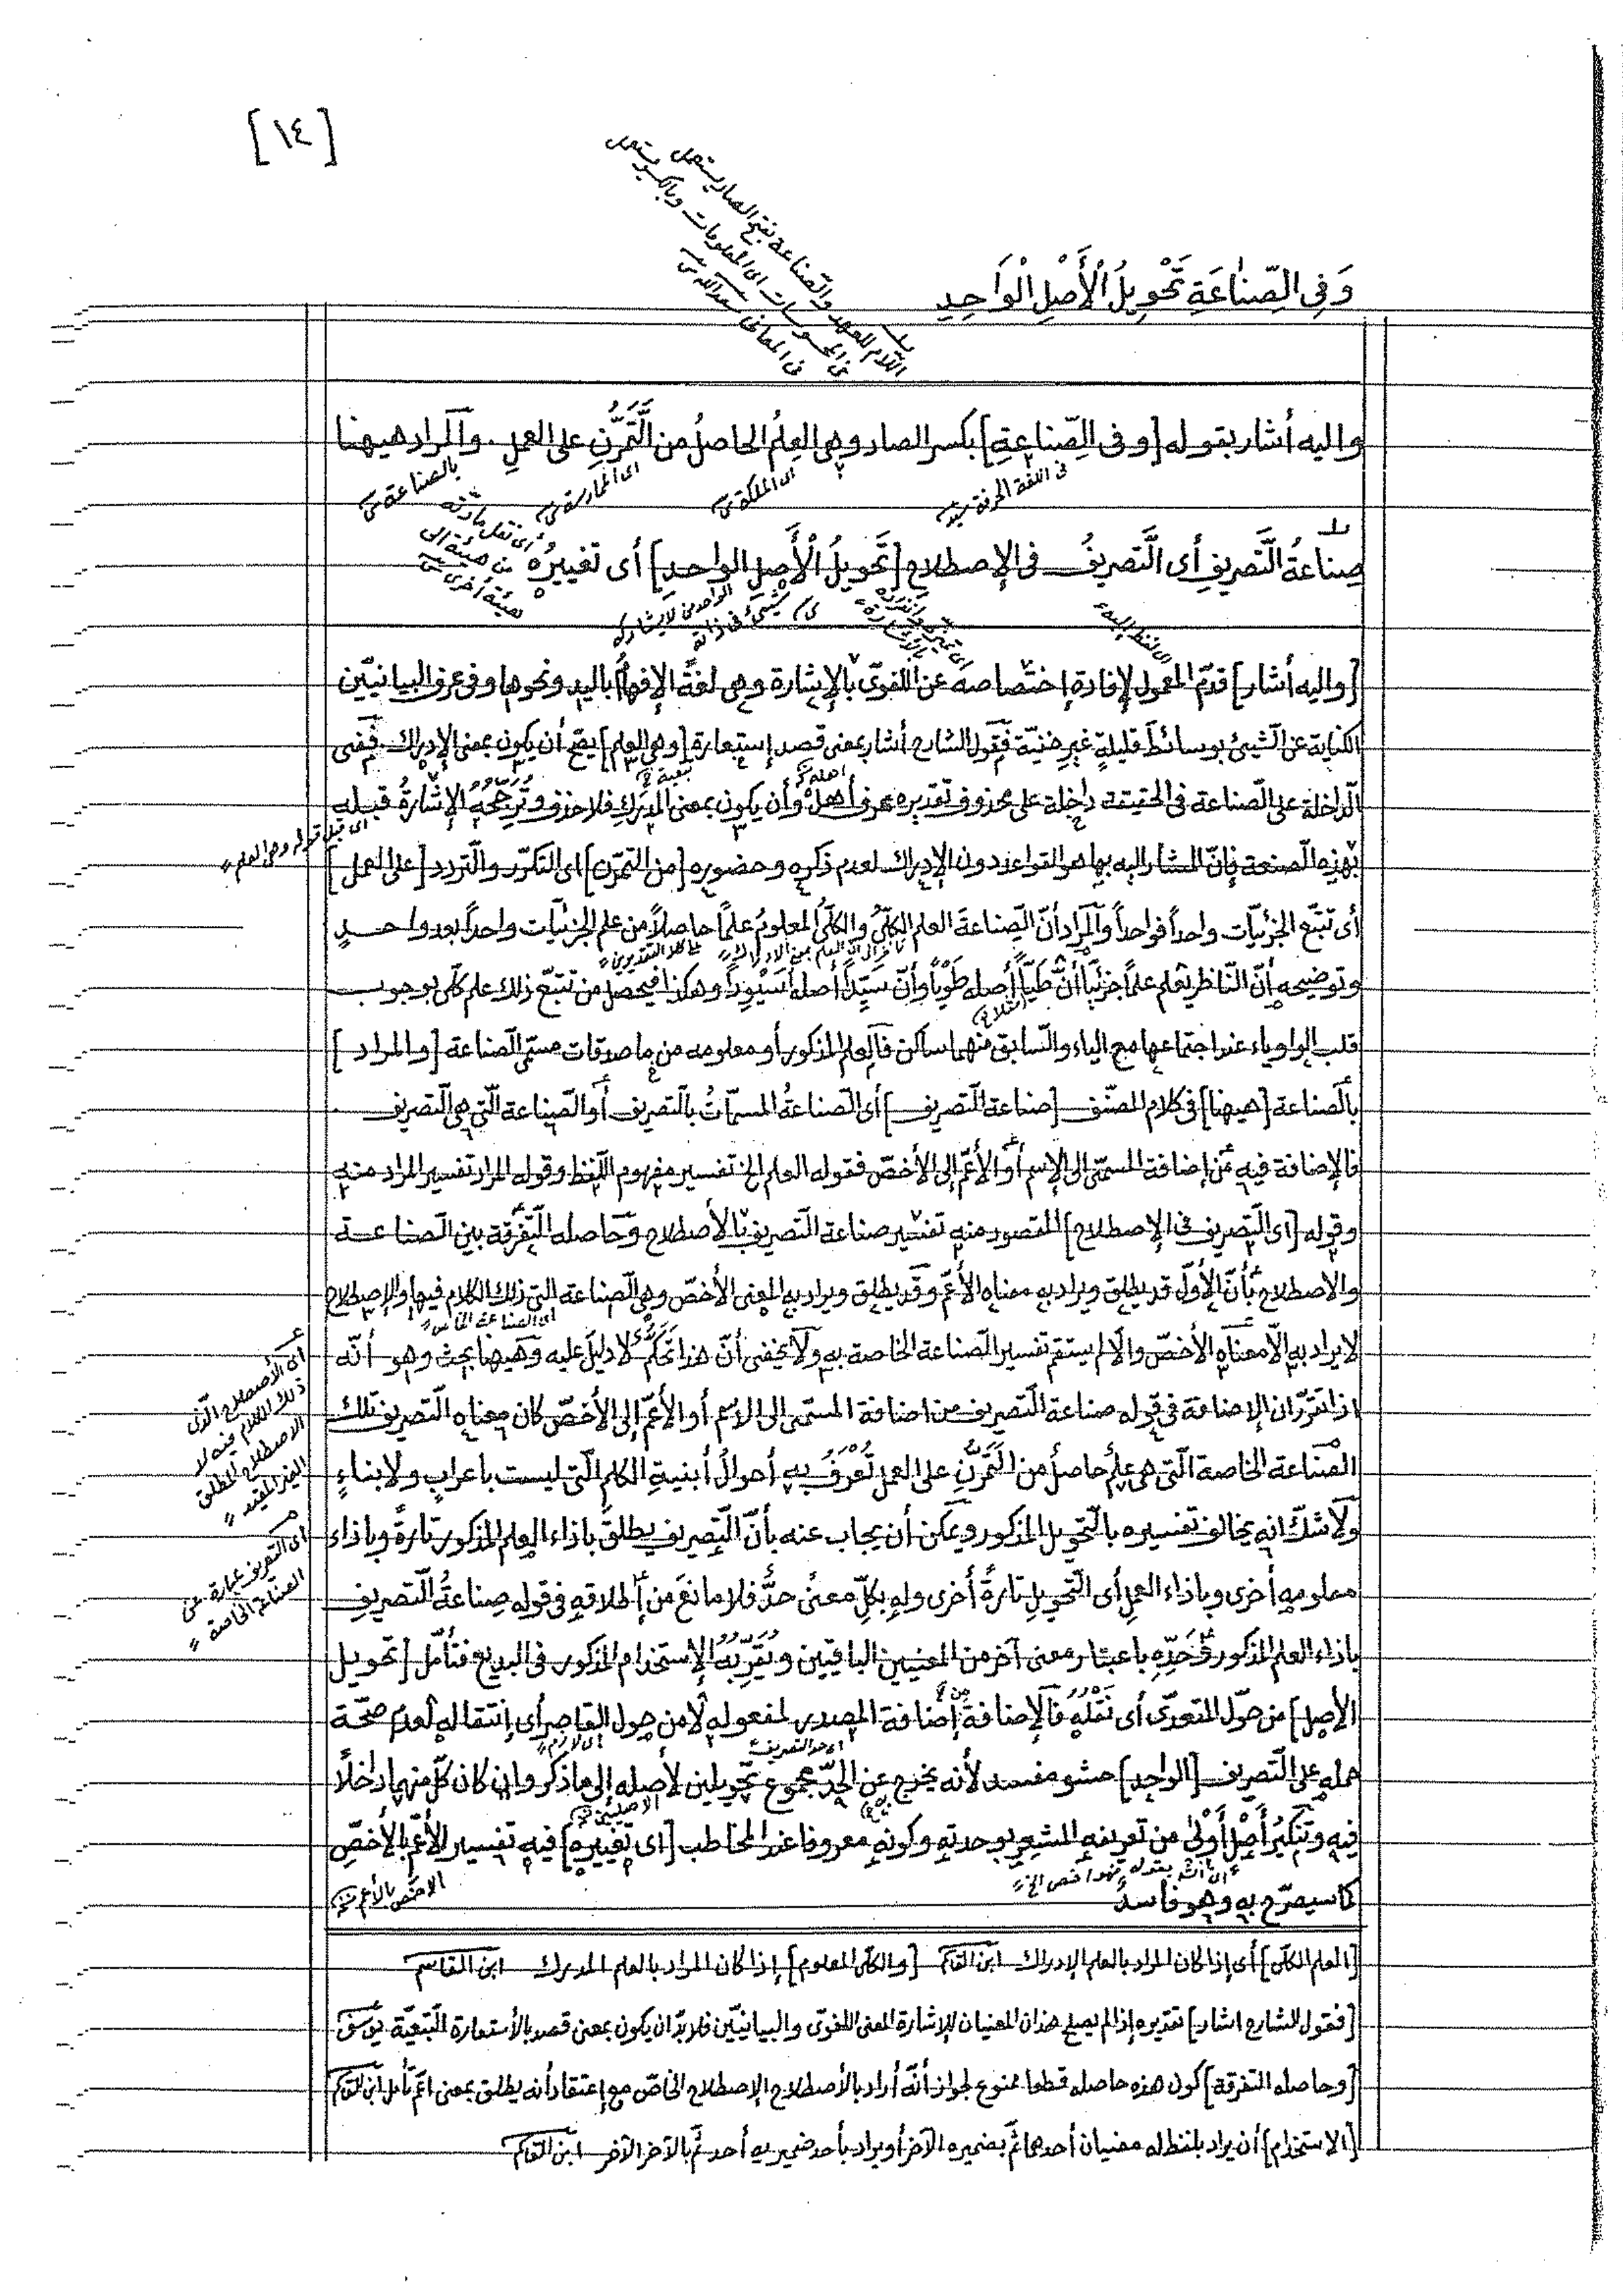 [١٤]
وَفِي الصِّنَاعَةِ تَحْوِيلُ الْأَصْلِ الْوَاحِدِ
اللام للعهد والصناعة بفتح الصاد يستعمل
في المحسوسات اى المعلومات وبالكسر يستعمل
في المعانى سعدالله
واليه أشار بقوله [وفى الصِّناعةِ] بكسر الصاد وهى العِلمُ الحاصلُ من التَّمَرُّنِ على العملِ. والمراد هيهنا
فى اللغة الحرفة
اى الملكة
اى الممارسة
بالصناعة
صِناعةُ التَّصريفِ أى التَّصريفُ فى الإصطلاح [تَحْوِيلُ الْأَصلِ الواحدِ] أى تغييرُه
أى نقل مادته
من هيئة الى
هيئة أخرى
الواحد من لا يشاركه
شيئ فى ذاته
[واليه أشار] قدّم المعمول لإفادة إختصاصه عن اللّغوىّ بالإشارة وهى لغةً الإفهامُ باليد ونحوها وفى عرف البيانيّين
الكناية عن الشيئ بوسائط قليلةٍ غيرِ خفيّة فقول الشارح أشار بمعنى قصد إستعارة [وهى العلم] يصح أن يكون بمعنى الإدراك ففى
تبعية
أهله
الدّاخلة على الصّناعة فى الحقيقة داخلة على محذوف تقديره عرف أهل وأن يكون بمعنى المدرَك فلا حذف وتُرَجِّحُهُ الإشارةُ قبيله
اى قبل قوله وهى العلم
بهذه الصنعة فإنّ المشار اليه بها هو القواعد دون الإدراك لعدم ذكره وحضوره [من التمرّن] اى التكرّر والتّردد [على العمل]
أى تتبّع الجزئيّات واحداً فواحداً والمراد أنّ الصّناعةَ العلم الكلّىُّ والكلّىّ المعلومُ علماً حاصلاً من علم الجزئيّات واحداً بعد واحدٍ
على كلا التقديرين
وتوضيحه أنّ النّاظر يعلم علماً جزئيّاً أنّ طَيّاً أصله طَوْياً وأنّ سَيِّداً أصله سَيْوِداً وهكذا فيحصل من تتبّع ذلك علم كلّى بوجوب
قلب الواو ياء عند اجتماعها مع الياء والسّابق منهما ساكن فالعلم المذكور أو معلومه من ما صدقات مسمّى الصّناعة [والمراد]
بالصناعة [هيهنا] فى كلام المصنّف [صناعة التّصريف] أى الصّناعةُ المسمّاتُ بالتّصريف أو الصّناعة الّتى هى التّصريف
فالإضافة فيه من إضافة المسمّى الى الإسم أو الأعمّ إلى الأخصّ فقوله العلم الخ تفسير مفهوم اللّفظ وقوله المراد تفسير المراد منه
وقوله [اى التّصريف فى الإصطلاح] المقصود منه تفسير صناعة التّصريف بالأصطلاح وحاصله التّفرقة بين الصّناعة
والاصطلاح بأنّ الأوّل قد يطلق ويراد به معناه الأعمّ وقد يطلق ويراد به المعنى الأخصّ وهى الصّناعة التى ذلك الكلام فيها والإصطلاح
اى الصناعة الخاص
لا يراد به إلّا معناه الأخصّ وإلّا لم يستقم تفسير الصّناعة الخاصة به ولا يخفى أنّ هذا تحكّم لا دليلَ عليه وهيهنا بحث وهو أنّه
أى الأصطلاح الّذى
ذلك الكلام فيه لا
الاصطلاح المطلق
الغير المقيد
اذا تقرّر ان الإضافة فى قوله صناعة التّصريف من اضافة المسمّى الى الاسم أو الأعمّ إلى الأخصّ كان معناه التّصريف تلك
الصّناعة الخاصة الّتى هى علمٌ حاصلٌ من التَّمَرُّنِ على العمل تُعْرَفُ به أحوالُ أبنيةِ الكلم الّتى ليست باعرابٍ ولا بناءٍ
ولا شكّ انه يخالف تفسيره بالتّحويل المذكور ويمكن أن يجاب عنه بأنّ التّصريف يطلق باذاء العلم المذكور تارةً وباذاء
اى التعريف عبارة عن
الصناعة الخاصة
معلومه أخرى وباذاء العملِ أى التّحويلِ تارةً أخرى وله بكلّ معنىً حدٌّ فلا مانعَ من إطلاقه فى قوله صِناعةُ التّصريفِ
باذاء العلم المذكور وحَدِّهِ باعتبار معنى آخر من المعنيين الباقيين ويُقَرِّبُهُ الإستخدام المذكور فى البديع فتأمّل [تحويل
الأصل] من حوّل المتعدّى أى نَقْلُهُ فالإضافة إضافة المصدر لمفعوله لا من حول القاصر أى إنتقاله لعدم صحّة
اى لازم
اى حد التصريف
حمله على التّصريف [الواحد] حشو مفسد لأنه يخرج عن الحدّ مجموع تحويلين لأصله إلى ما ذكر وإن كان كلّ منهما داخلاً
فيه وتنكيرُ أصْلٍ أوْلىٰ من تعريفه المشعر بوحدته وكونه معروفا عند المخاطب [اى تغييره] فيه تفسير الأعمّ بالأخصّ
الاخص بالأعم نسخه
كما سيصرّح به وهو فاسد
[العلم الكلّى] أى إذا كان المراد بالعلم الإدراك ابن القاسم [والكلّى المعلوم] إذا كان المراد بالعلم المدرك ابن القاسم
[فقول الشارح اشار] تقديره إذا لم يصلح هذان المعنيان للإشارة المعنى اللغوىّ والبيانيّين فلا بدّ ان يكون بمعنى قصد بالأستعارة التّبعيّة يوسف
[وحاصله التفرقة] كون هذه حاصله قطعا ممنوع لجواز أنّه أراد بالأصطلاح الإصطلاح الخاصّ مع إعتقاد أنه يطلق بمعنى اعمّ تأمل ابن القاسم
[الاستخدام] أن يراد بلفظ له معنيان أحدهما ثمّ بضميره الآخر أو يراد بأحد ضميريه أحد ثمّ بالآخر الآخر ابن القاسم